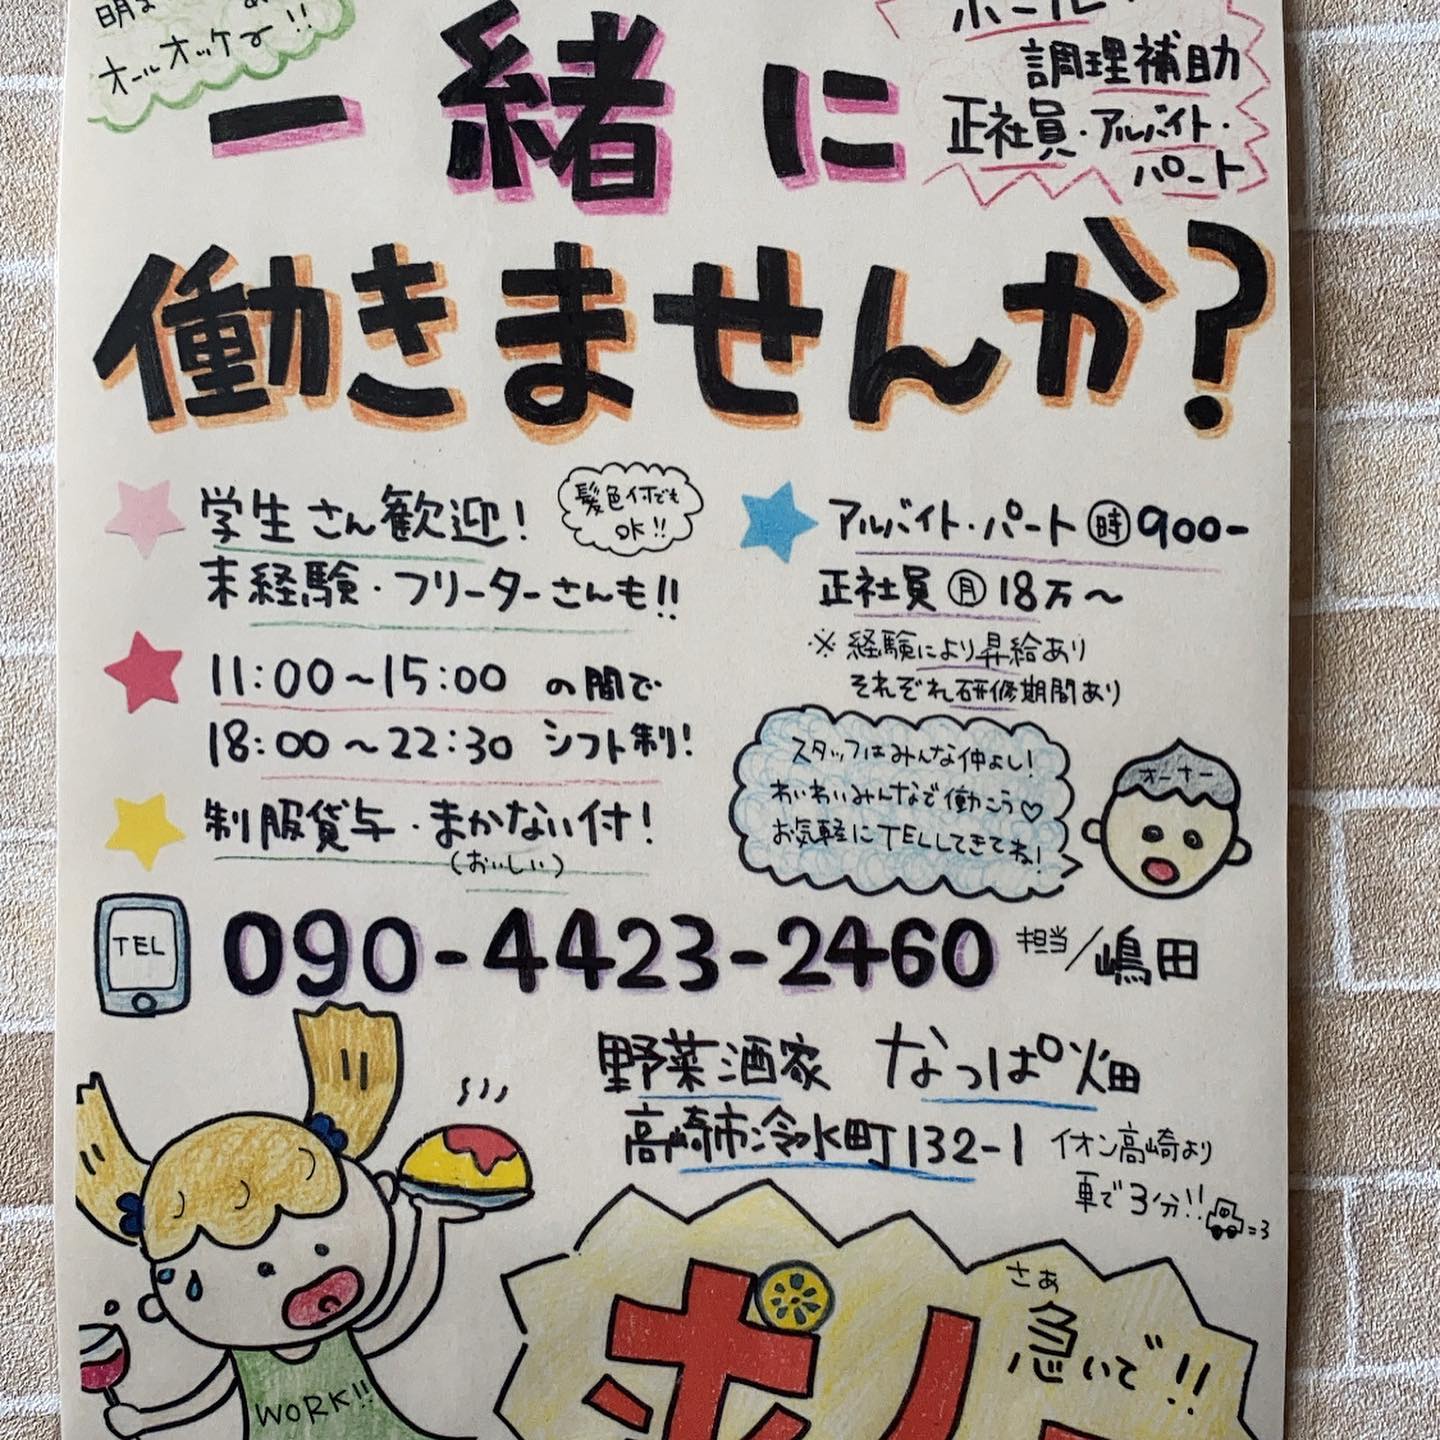 オールオッケー!!
ホール・
調理補助
正社員・アルバイト・
パート
一緒に
働きませんか?
学生さん歓迎!
髪色何でも
OK!!
未経験・フリーターさんも!!
11:00～15:00 の間で
18:00～22:30 シフト制!
制服貸与・まかない付!
(おいしい)
アルバイト・パート 時 900-
正社員 月 18万～
※経験により昇給あり
それぞれ研修期間あり
スタッフはみんな仲よし!
わいわいみんなで働こう♡
お気軽にTELしてきてね!
オーナー
TEL
090-4423-2460 担当/嶋田
野菜酒家 なっぱ畑
高崎市冷水町132-1 イオン高崎より
車で3分!!
=3
さぁ
急いで!!
WORK!!